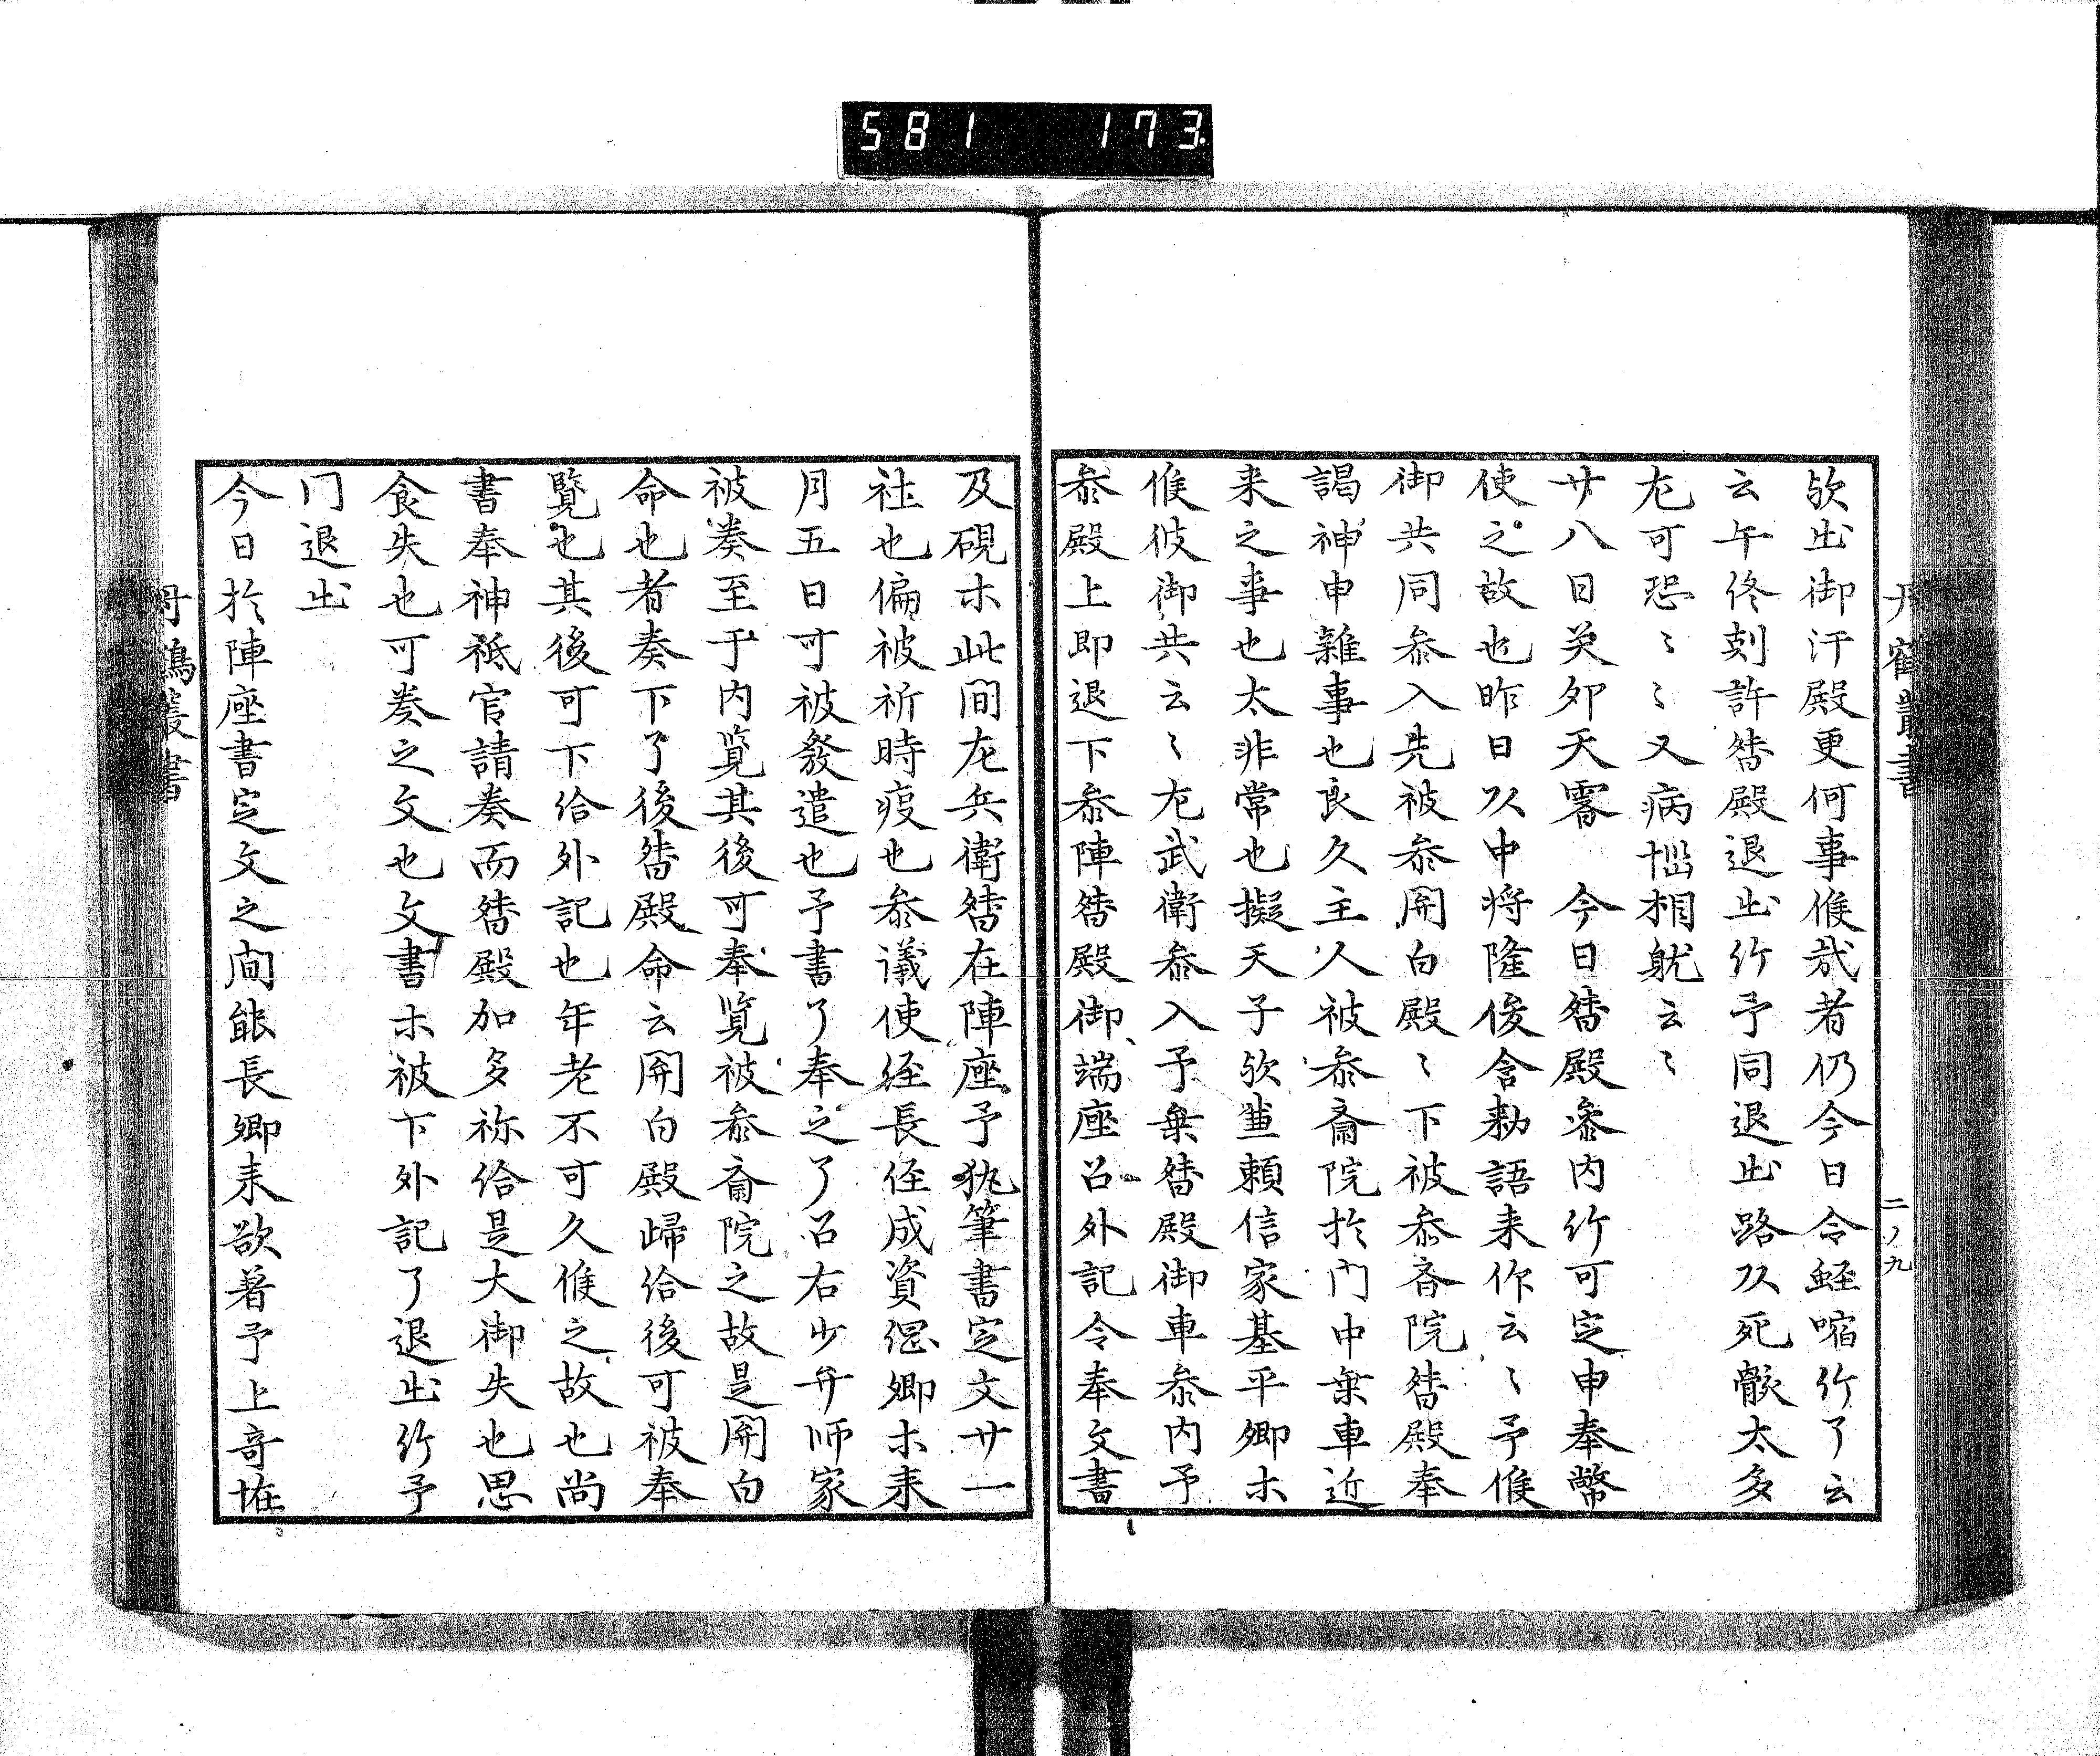 581 173
丹鶴叢書 二ノ九
欤出御汗殿更何事候哉者仍今日令蛭喰給了云
云午終刻許督殿退出給予同退出路次死骸太多
尤可恐〻〻又病悩相就云〻
廿八日癸卯天霽 今日督殿参内給可定申奉幣
使之故也昨日以中将隆俊含勅語来仰云〻予候
御共同参入先被参関白殿〻下被参斎院督殿奉
謁神申雑事也良久主人被参斎院於門中乗車近
来之事也太非常也擬天子欤兼頼信家基平卿等
候彼御共云〻左武衛参入予乗督殿御車参内予
参殿上即退下参陣督殿御端座召外記令奉文書
及硯等此間左兵衛督在陣座予執筆書定文廿一
社也偏被祈時疫也参議使経長経成資綱卿等来
月五日可被發遣也予書了奉之了召右少弁師家
被奏至于内覧其後可奉覧被参斎院之故是関白
命也者奏下了後督殿命云関白殿帰給後可被奉
覧也其後可下給外記也年老不可久候之故也尚
書奉神祇官請奏而督殿加多祢給是大御失也思
食失也可奏之文也文書等被下外記了退出給予
同退出
今日於陣座書定文之間能長卿来欲著予上哥垢
丹鶴叢書